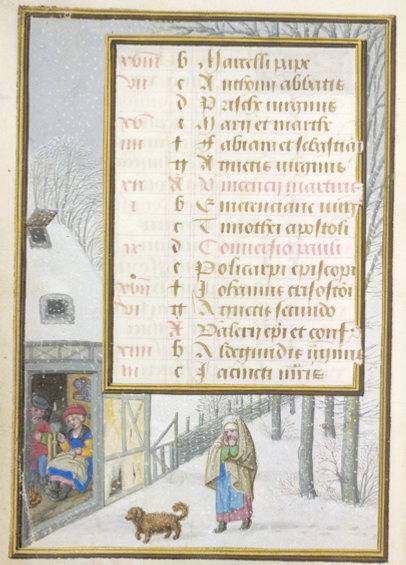 xviii b Marcelli pape
vii c Anthonii abbatis
d Prische virginis
xv e Marii et marthe
iiii f Fabiani et sebastiani
g Agnetis virginis
xii A Vincencii martiris
i b Emerenciane virg
c Timothei apostoli
ix d Conversio pauli
e Policarpi episcopi
xvii f Johannis crisostomi
vi g Agnetis secundo
A Valerii epi et conf
xiiii b Aldegundis virginis
iii c Jacincti m̄ris